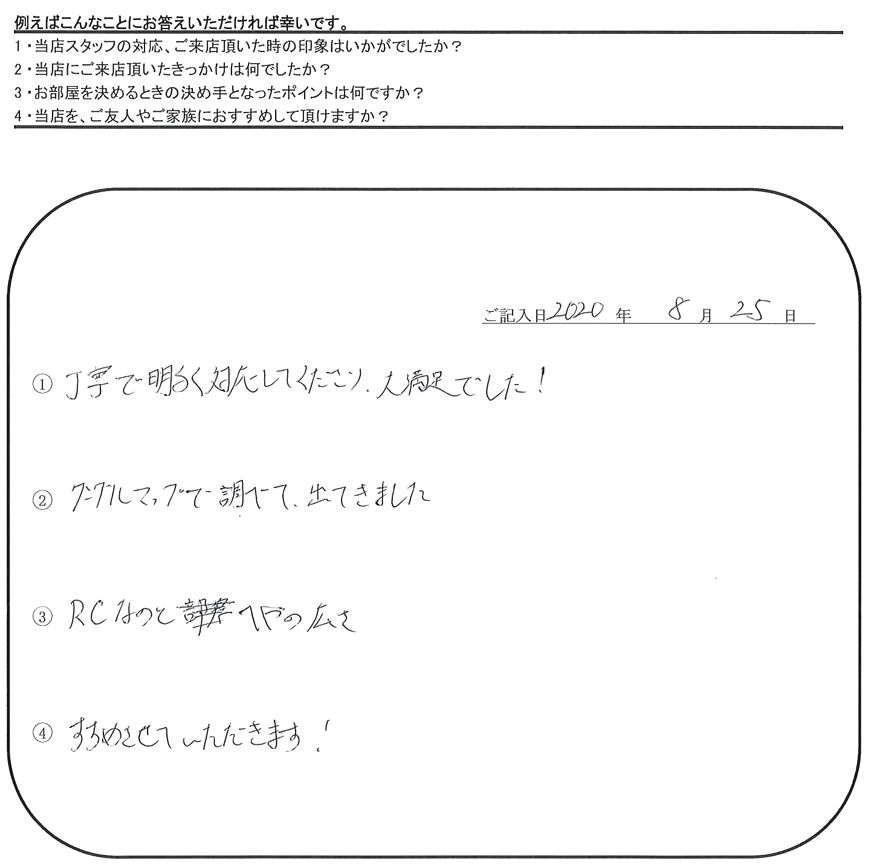 例えばこんなことにお答えいただければ幸いです。
1・当店スタッフの対応、ご来店頂いた時の印象はいかがでしたか？
2・当店にご来店頂いたきっかけは何でしたか？
3・お部屋を決めるときの決め手となったポイントは何ですか？
4・当店を、ご友人やご家族におすすめして頂けますか？
ご記入日2020年 8月25日
① 丁寧で明るく対応してくださり、大満足でした！
② グーグルマップで調べて、出てきました
③ RCなのと へやの広さ
④ すすめさせていただきます！